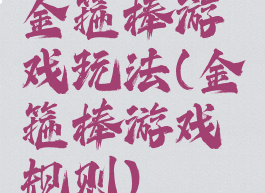 金箍棒游
戏玩法(金
箍棒游戏
规则)